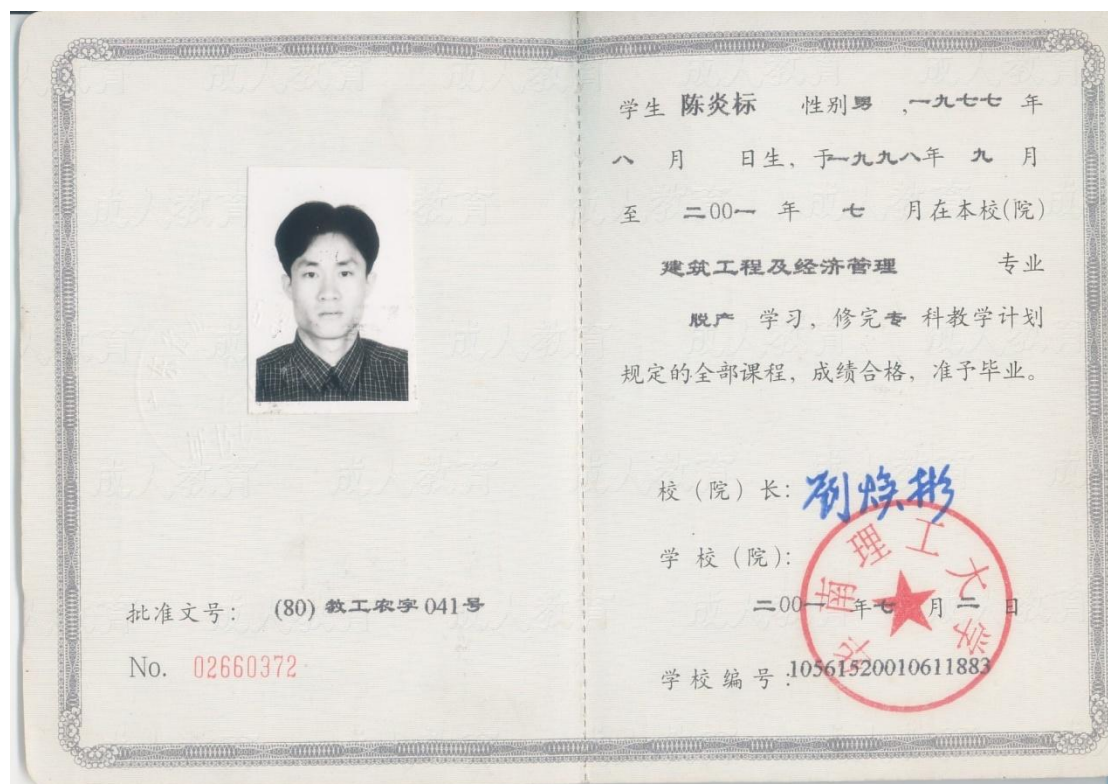 批准文号: (80) 教工农字 041号
No. 02660372
学生 陈炎标 性别男 ,一九七七 年
八 月 日生, 于一九九八年 九 月
至 二00一 年 七 月在本校(院)
建筑工程及经济管理 专业
脱产 学习, 修完专 科教学计划
规定的全部课程, 成绩合格, 准予毕业。
校(院)长: 刘焕彬
学校(院):
华南理工大学
二00一年七月二日
学校编号: 10561520010611883
成人教育